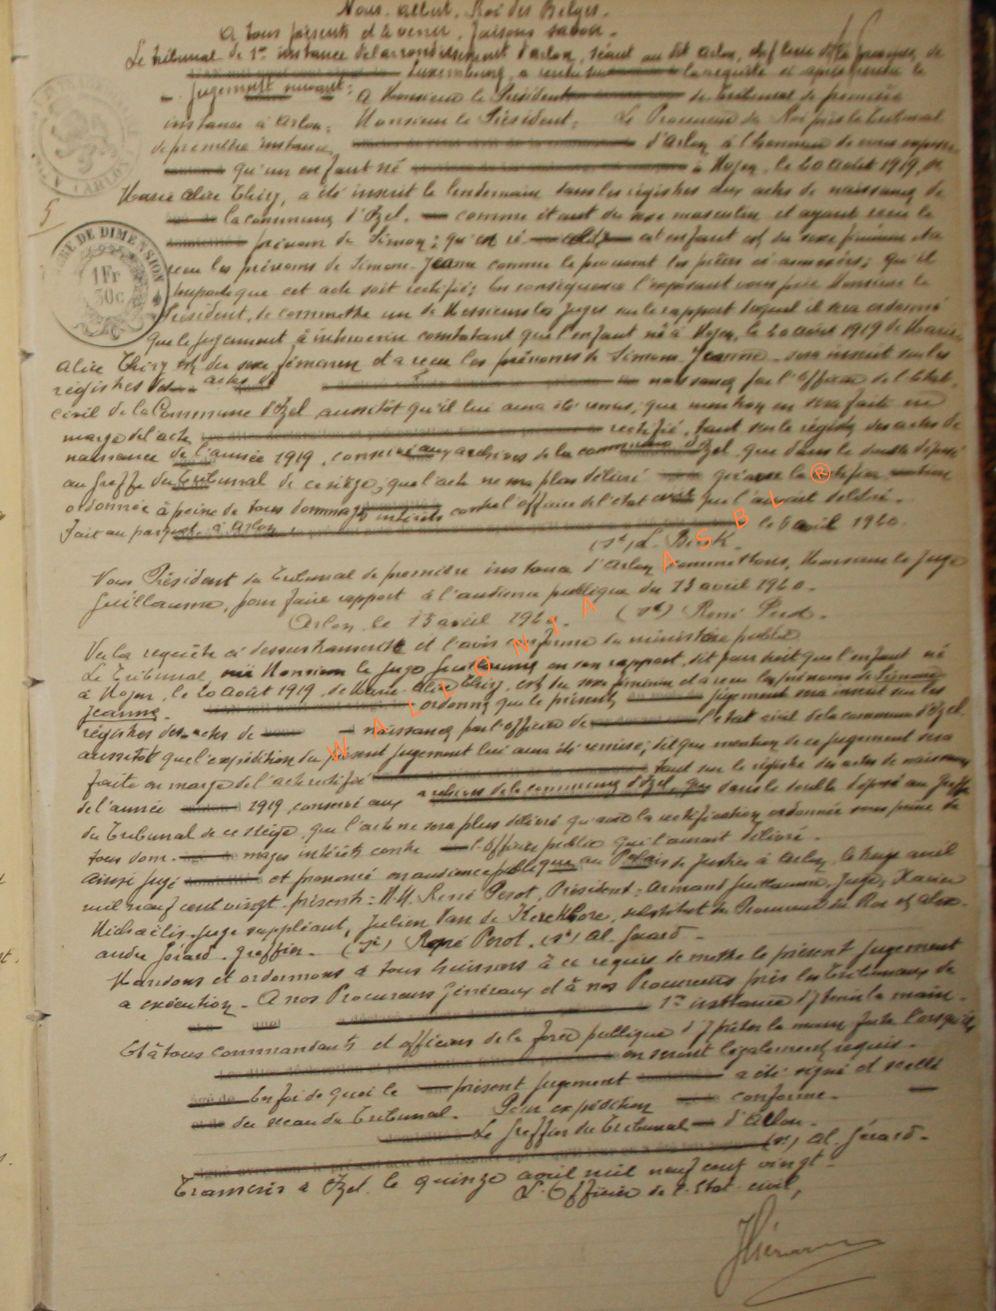 Nous, Albert, Roi des Belges,
A tous présents et à venir, faisons savoir.
Le tribunal de 1re instance de l'arrondissement d'Arlon, séant au dit Arlon, chef lieu de la Province de
Luxembourg, a rendu la requête ci après rendu le
Jugement suivant: A Monsieur le Président du Tribunal de première
instance à Arlon: Monsieur le Président, Le Procureur du Roi près le tribunal
de première instance d'Arlon à l'honneur de vous exposer
qu'un enfant né à Moyen, le 20 août 1919, de
Marie Alice Thiry, a été inscrit le lendemain dans les registres aux actes de naissances de
la commune d'Izel, comme étant du sexe masculin et ayant reçu le
prénom de Simon; qu'en ré cet enfant est du sexe féminin et a
reçu les prénoms de Simone-Jeanne comme le prouvent les pièces ci annexées; qu'il
importe que cet acte soit rectifié; En conséquence l'exposant vous prie Monsieur le
Président, de commettre un de Messieurs les Juges sur le rapport duquel il sera ordonné
que le jugement à intervenir constatant que l'enfant né à Moyen, le 20 août 1919 de Marie
Alice Thiry est du sexe féminin et a reçu les prénoms de Simone-Jeanne sera inscrit sur les
registres des actes de naissance par l'officier de l'état-
civil de la Commune d'Izel aussitôt qu'il lui aura été remis, que mention en sera faite en
marge de l'acte rectifié, tant sur le registre des actes de
naissance de l'année 1919, conservé aux archives de la commune d'Izel que dans le double déposé
au Greffe du tribunal de ce siège, que l'acte ne sera plus délivré qu'avec la
ordonnée à peine de tous dommages intérêts contre l'officier de l'état civil qui l'aurait délivré.
Fait au parquet à Arlon le avril 1920.
(sé)
Nous Président du Tribunal de première instance d'Arlon commettons, Monsieur le Juge
Guillaume, pour faire rapport à l'audience publique du 13 avril 1920.
Arlon le 13 avril 1920. (sé) René Perot.
Vu la requête ci dessus transcrite et l'avis conforme du ministère public
Le Tribunal, ouï Monsieur le Juge Guillaume en son rapport, dit pour droit que l'enfant né
à Moyen, le 20 août 1919, de Marie-Alice Thiry, est du sexe féminin et a reçu les prénoms de Simone
Jeanne. ordonne que le présent jugement sera inscrit sur les
registres des actes de naissance par l'officier de l'état civil de la commune d'Izel.
aussitôt que l'expédition du présent jugement lui aura été remise; dit que mention de ce jugement sera
faite en marge de l'acte rectifié tant sur le registre des actes de naissance
de l'année 1919, conservé aux archives de la commune d'Izel, que dans le double déposé au Greffe
du Tribunal de ce siège, que l'acte ne sera plus délivré qu'avec la rectification ordonnée sous peine de
tous dommages intérêts contre l'officier public qui l'aurait délivré.
Ainsi jugé et prononcé en audience publique au Palais de Justice à Arlon, le treize avril
mil neuf cent vingt. présents: M.M. René Perot, Président; Armand Guillaume, Juge; Xavier
Michaëlis, Juge suppléant, Julien Van de Kerckhove, substitut du Procureur du Roi et Alex-
andre Gérard, Greffier. (sé) René Perot. (sé) Al. Gérard.
Mandons et ordonnons à tous huissiers à ce requis de mettre le présent Jugement
à exécution. A nos Procureurs Généraux et à nos Procureurs près les tribunaux de
1re instance d'y tenir la main.
Et à tous commandants et officiers de la force publique d'y prêter la main forte lorsqu'ils
en seront légalement requis.
En foi de quoi le présent jugement a été signé et scellé
du sceau du Tribunal. Pour expédition conforme.
Le Greffier du Tribunal d'Arlon.
(sé) Al. Gérard.
Transcrit à Izel, le quinze avril mil neuf cent vingt.
L'Officier de l'état civil,
TIMBRE DE DIMENSION
1 Fr
30c
ARLON
WALLONIA ASBL ®